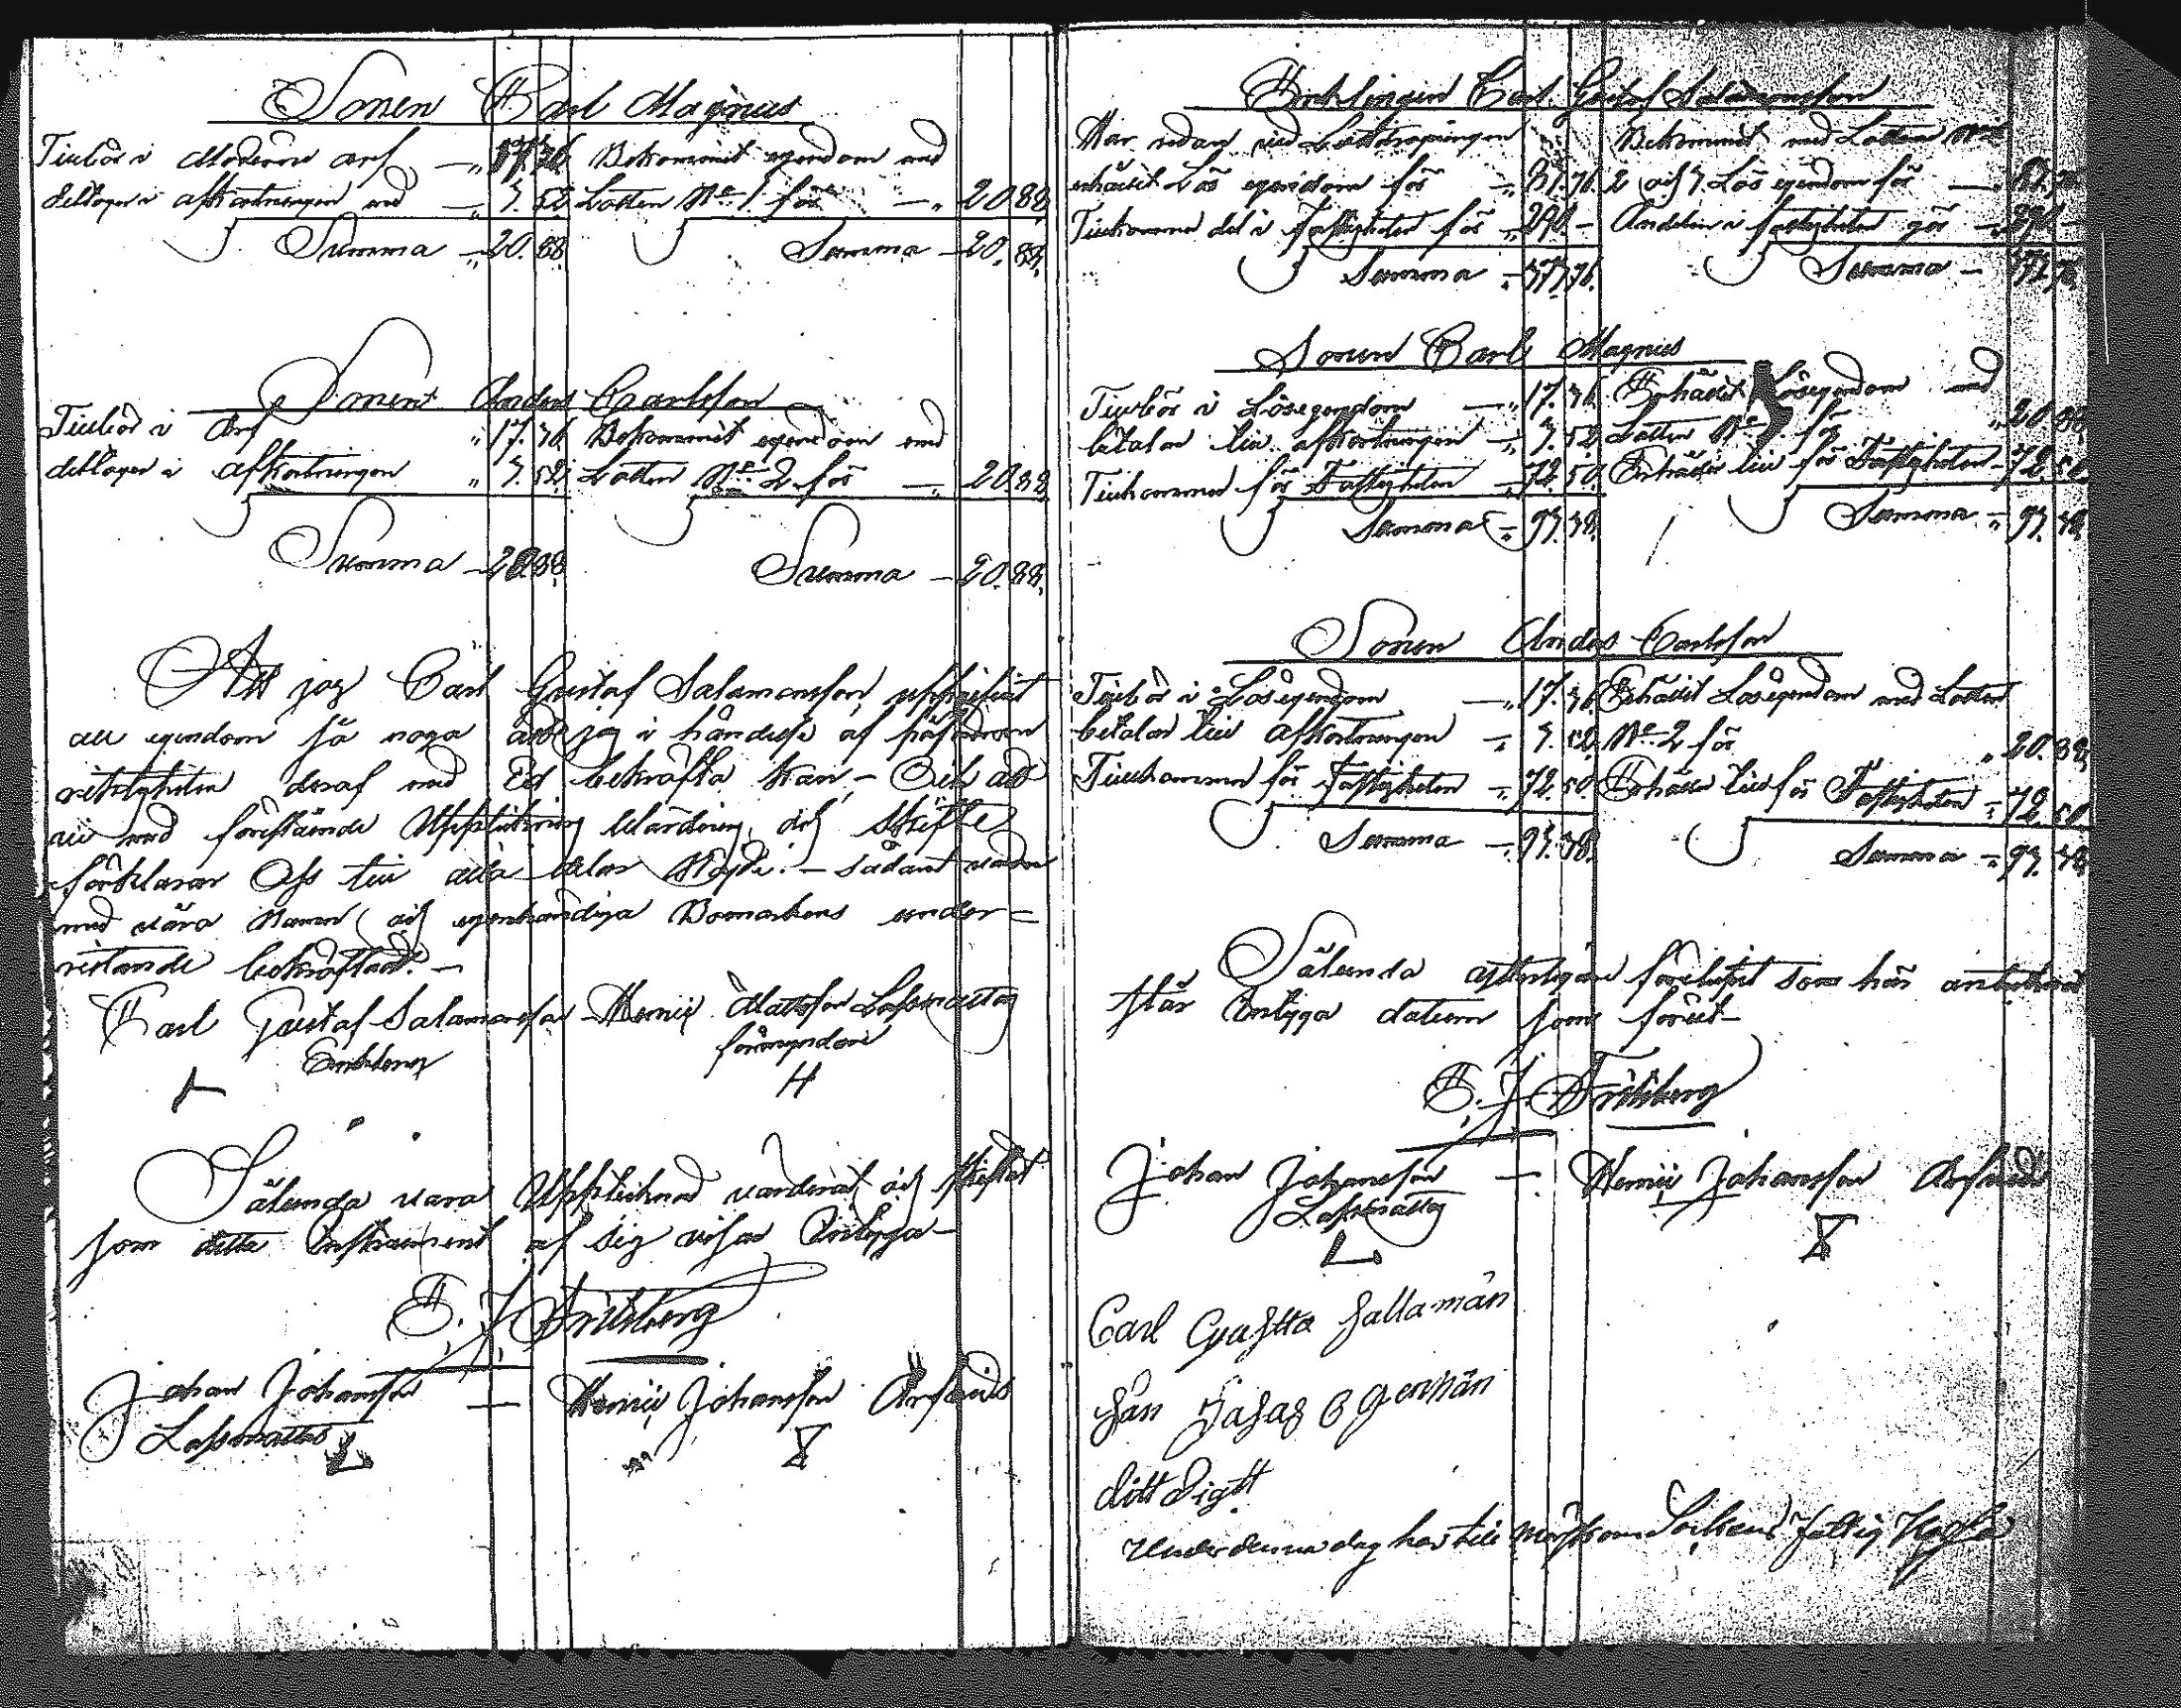 Sonen Carl Magnus
Tillkör i Moderns arf — „ 17.36 Bekommit egendom med
deltager i afkortningen med — „ 3.52 Lotten No 1 för — „ 20.88
Summa — „ 20.88 Summa — 20.88
Sonen Anders Carlsson
Tillkör i Arf „ 17.36 Bekommit egendom med
deltager i afkortningen „ 3.52 Lotten No 2 för — „ 20.88
Summa — 20.88 Summa — 20.88
Att jag Carl Gustaf Salamonsson uppgifvit
all egendom så noga att jag i händelse af påfordran
riktigheten deraf med Ed bekräfta kan — Och att
vi med föreståënde Uppteckning Värdering och Skifte
förklarar Oss till alla delar Nöjde. — sådant varder
med våra Namn och egenhändiga Bomärkens under=
ristande bekräftadt. —
Carl Gustaf Salamonsson Henric Mattsson Lassmattas
Enkling förmyndare
H
Sålunda vara Upptecknad värderat och skiftat
som detta Instrument af sig visar Intyga —
E. J. Friberg
Johan Johansson — Henric Johansson Arfwids
Lassmattas
Enklingen Carl Gustaf Salamonsson
Har redan vid Lottdragningen Bekommit med Lotten No
erhållit Lös egendom för 2 och 3 Lös egendom för
Tillkommer del i fastigheten för „ 290 — Andelen i fastigheten gör — 290 —
Summa Summa —
Sonen Carl Magnus
Tillkör i Lösegendom — „ 17.36 Erhållit Lösegendom med
betalar till afkortningen — „ 3.52 Lotten No för „ 20.88
Tillkommer för Fastigheten — 72.50 Erhåller till för Fastigheten — 72.50
Summa „ 93.38 Summa — „ 93.38
Sonen Anders Carlsson
Tillkör i Lösegendom — „ 17.36 Erhållit Lösegendom med Lotten
betalar till afkortningen — „ 3.52 No 2 för „ 20.88
Tillkommer för Fastigheten — „ 72.50 Erhåller till för Fastigheten — 72.50
Summa — „ 93.38 Summa — „ 93.38
Sålunda förelupit som här antecknad
står Intyga datum som förut —
E. J. Friberg
Johan Johansson — Henric Johansson Arfwids
Lassmattas
L
Carl
Under denna dag har till Sockens fattig Kassa